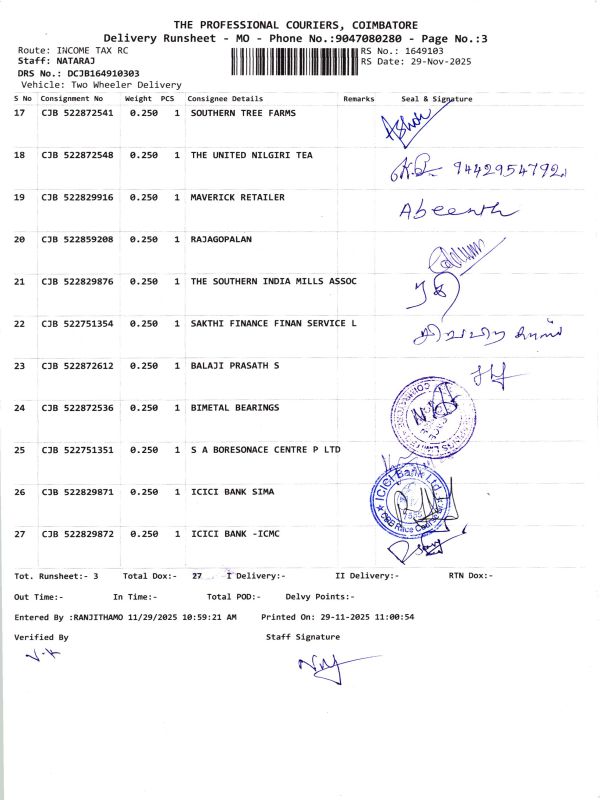 THE PROFESSIONAL COURIERS, COIMBATORE
Delivery Runsheet - MO - Phone No.:9047080280 - Page No.:3
Route: INCOME TAX RC RS No.: 1649103
Staff: NATARAJ RS Date: 29-Nov-2025
DRS No.: DCJB164910303
Vehicle: Two Wheeler Delivery
S No Consignment No Weight PCS Consignee Details Remarks Seal & Signature
17 CJB 522872541 0.250 1 SOUTHERN TREE FARMS Ashok
18 CJB 522872548 0.250 1 THE UNITED NILGIRI TEA 9442954792
19 CJB 522829916 0.250 1 MAVERICK RETAILER Abeenth
20 CJB 522859208 0.250 1 RAJAGOPALAN
21 CJB 522829876 0.250 1 THE SOUTHERN INDIA MILLS ASSOC
22 CJB 522751354 0.250 1 SAKTHI FINANCE FINAN SERVICE L
23 CJB 522872612 0.250 1 BALAJI PRASATH S
24 CJB 522872536 0.250 1 BIMETAL BEARINGS
25 CJB 522751351 0.250 1 S A BORESONACE CENTRE P LTD
26 CJB 522829871 0.250 1 ICICI BANK SIMA ICICI Bank Ltd.
27 CJB 522829872 0.250 1 ICICI BANK -ICMC
Tot. Runsheet:- 3 Total Dox:- 27 I Delivery:- II Delivery:- RTN Dox:-
Out Time:- In Time:- Total POD:- Delvy Points:-
Entered By :RANJITHAMO 11/29/2025 10:59:21 AM Printed On: 29-11-2025 11:00:54
Verified By Staff Signature
V.K